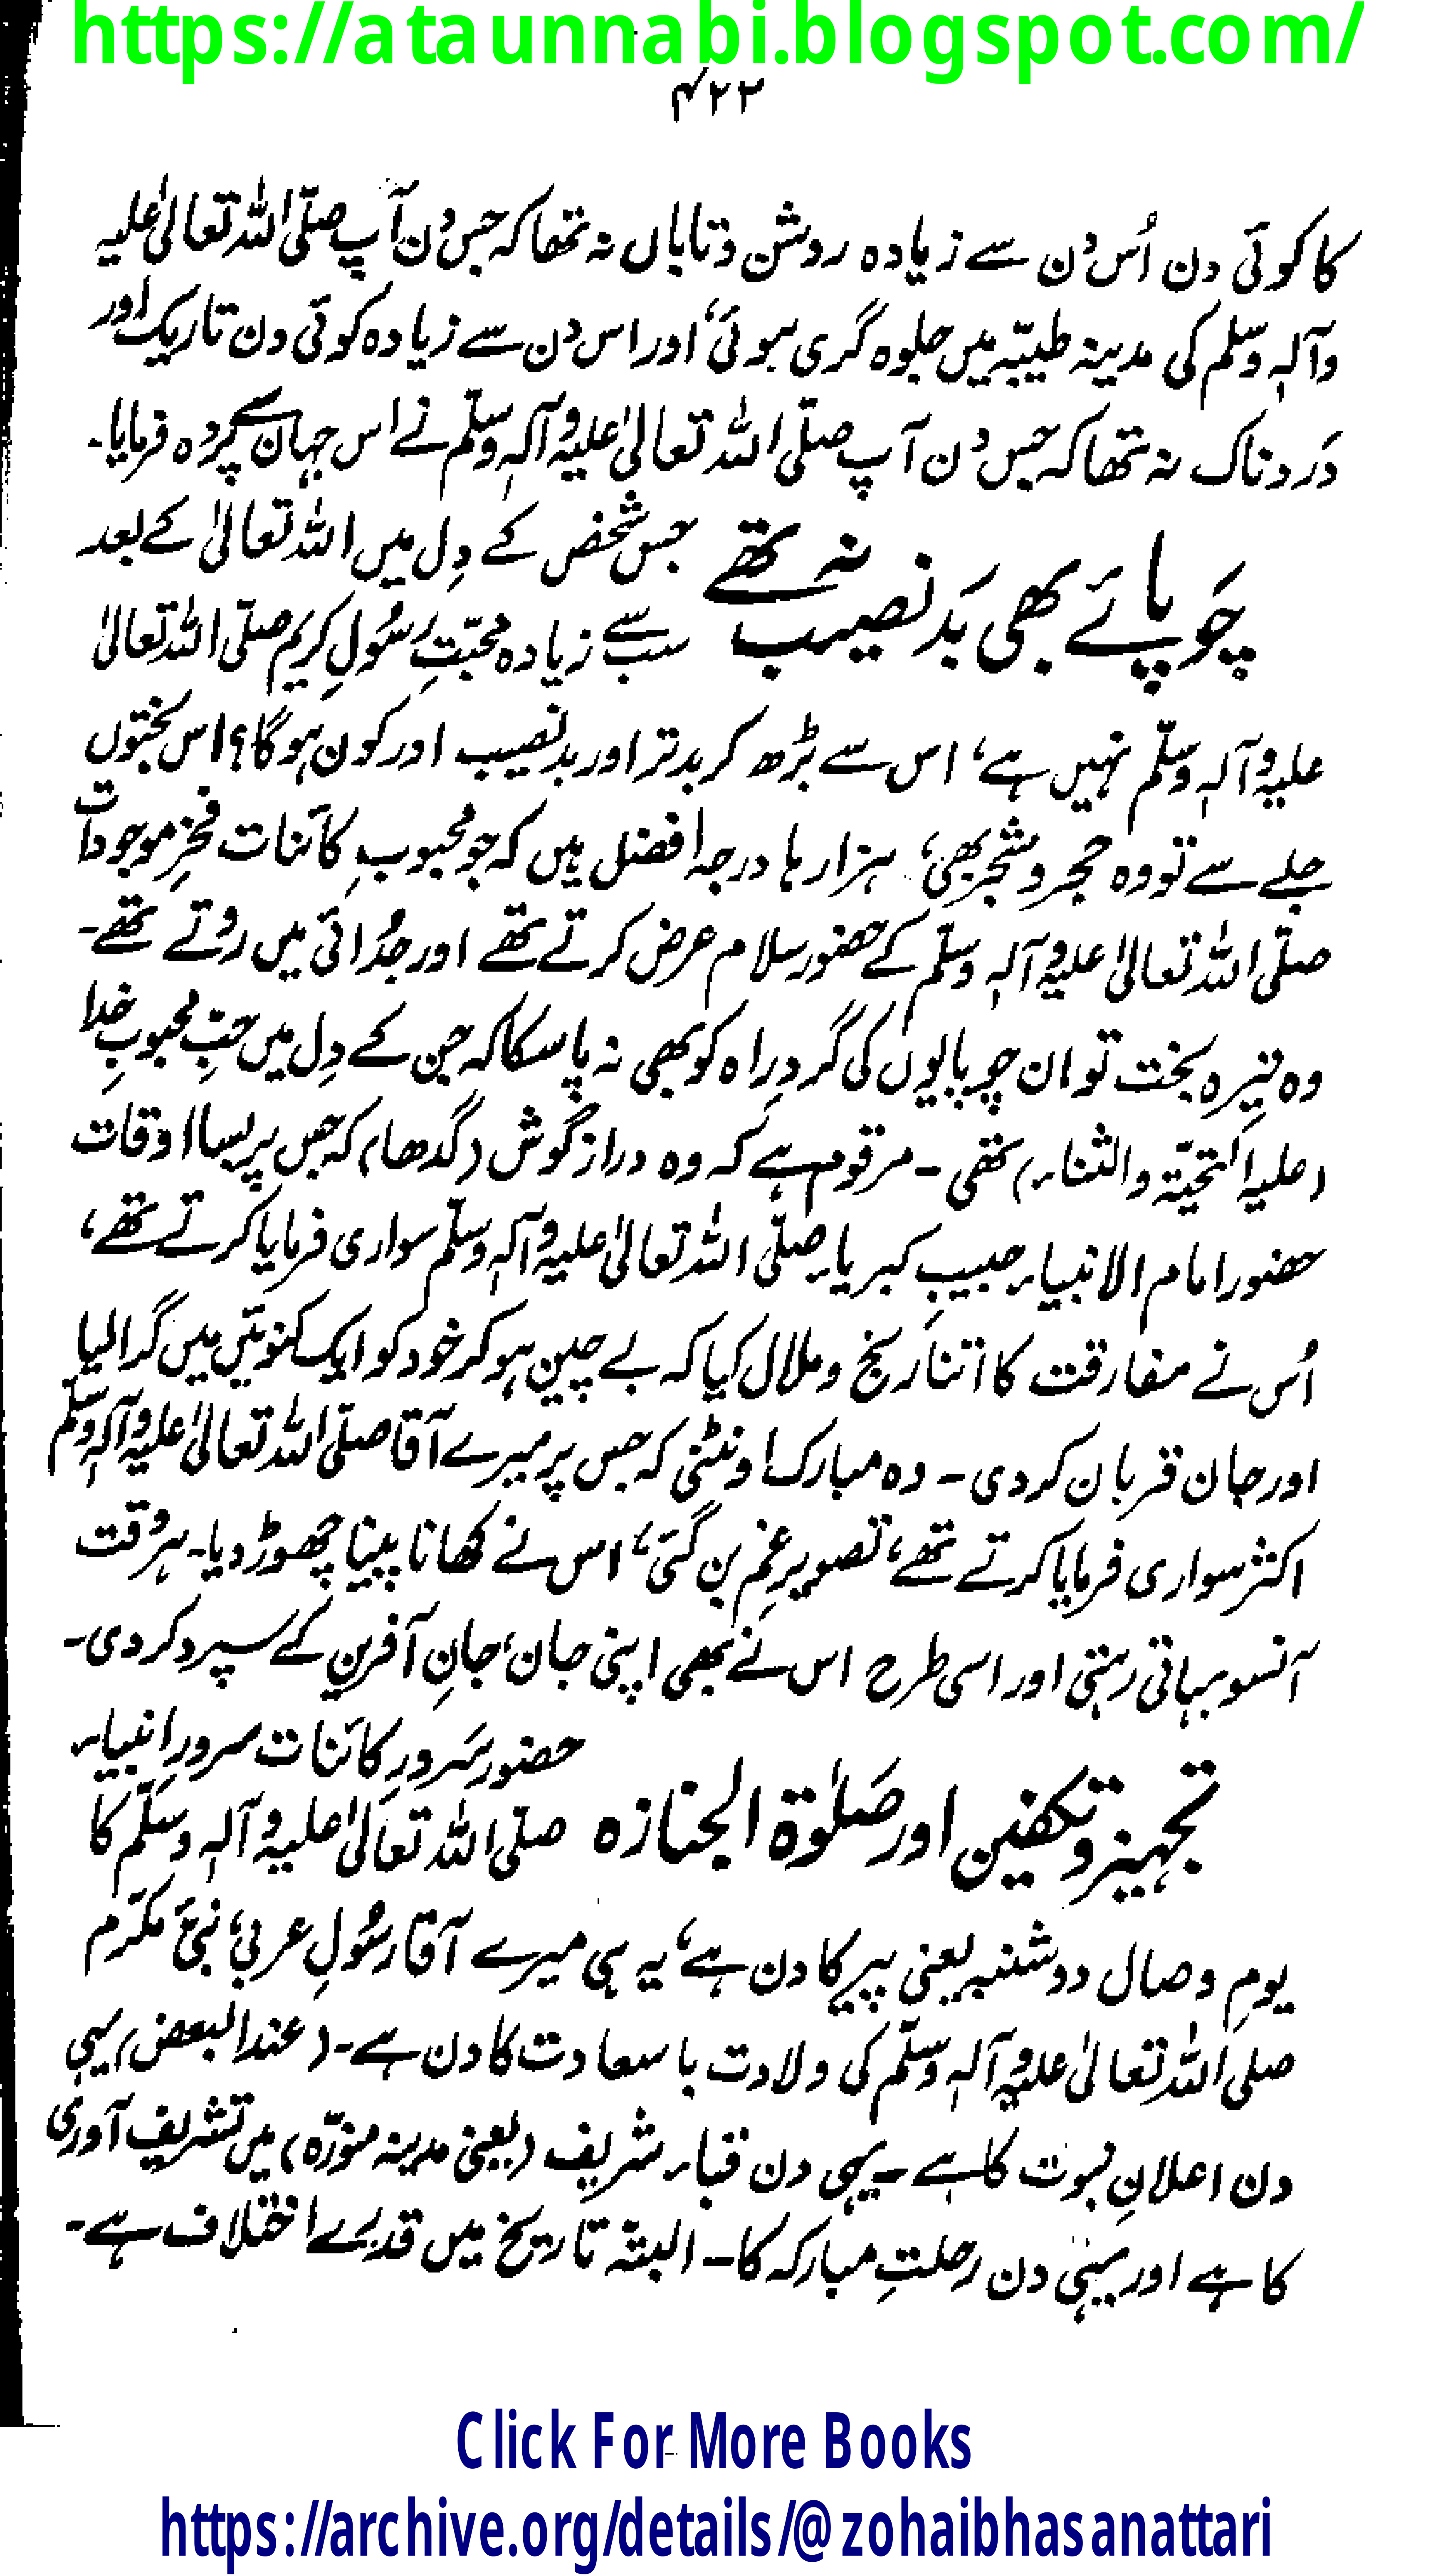 https://ataunnabi.blogspot.com/
۴۲۲
کا کوئی دن اُس دن سے زیادہ روشن و تاباں نہ تھا کہ جس دن آپ صلّی اللہ تعالیٰ علیہ
وآلہٖ وسلّم کی مدینہ طیبّہ میں جلوہ گری ہوئی، اور اس دن سے زیادہ کوئی دن تاریک اور
دَردناک نہ تھا کہ جس دن آپ صلّی اللہ تعالیٰ علیہ وآلہٖ وسلّم نے اس جہان سے پردہ فرمایا۔
چَوپائے بھی بَد نصیب نہ تھے
جس شخص کے دِل میں اللہ تعالیٰ کے بعد
سب سے زیادہ محبّتِ رسُولِ کریم صلّی اللہ تعالیٰ
علیہ وآلہٖ وسلّم نہیں ہے، اس سے بڑھ کر بدتر اور بدنصیب اور کون ہوگا؟ اس بختوں
جلے سے تو وہ حجر و شجر بھی، ہزار ہا درجہ افضل ہیں کہ جو محبوبِ کائنات فخرِ موجودات
صلّی اللہ تعالیٰ علیہ وآلہٖ وسلّم کے حضور سلام عرض کرتے تھے اور جدُائی میں روتے تھے۔
وہ تیرہ بخت تو ان چوپایوں کی گردِ راہ کو بھی نہ پا سکا کہ جن کے دِل میں حبِّ محبوبِ خدا
(علیہ التحیّۃ والثناء) تھی۔ مرقوم ہے کہ وہ دراز گوش (گدھا) کہ جس پر بسا اوقات
حضور امام الانبیاء حبیبِ کبریاء صلّی اللہ تعالیٰ علیہ وآلہٖ وسلّم سواری فرمایا کرتے تھے،
اُس نے مفارقت کا اتنا رنج و ملال کیا کہ بے چین ہو کر خود کو ایک کنوئیں میں گرا لیا
اور جان قربان کر دی۔ وہ مبارک اونٹنی کہ جس پر میرے آقا صلّی اللہ تعالیٰ علیہ وآلہٖ وسلّم
اکثر سواری فرمایا کرتے تھے، تصویرِ غم بن گئی، اس نے کھانا پینا چھوڑ دیا۔ ہر وقت
آنسو بہاتی رہتی اور اسی طرح اس نے بھی اپنی جان، جانِ آفرین کے سپرد کر دی۔
تجہیز و تکفین اور صَلوٰۃ الجنازہ
حضور سَرورِ کائنات سرورِ انبیاء
صلّی اللہ تعالیٰ علیہ وآلہٖ وسلّم کا
یومِ وصال دو شنبہ یعنی پیر کا دن ہے، یہ ہی میرے آقا رسُولِ عربی، نبیِّ مکرّم
صلی اللہ تعالیٰ علیہ وآلہٖ وسلّم کی ولادت با سعادت کا دن ہے۔ (عند البعض) یہی
دن اعلانِ نبوت کا ہے۔ یہی دن قباء شریف (یعنی مدینہ منوّرہ) میں تشریف آوری
کا ہے اور یہی دن رحلتِ مبارکہ کا۔ البتّہ تاریخ میں قدرے اختلاف ہے۔
Click For More Books
https://archive.org/details/@zohaibhasanattari